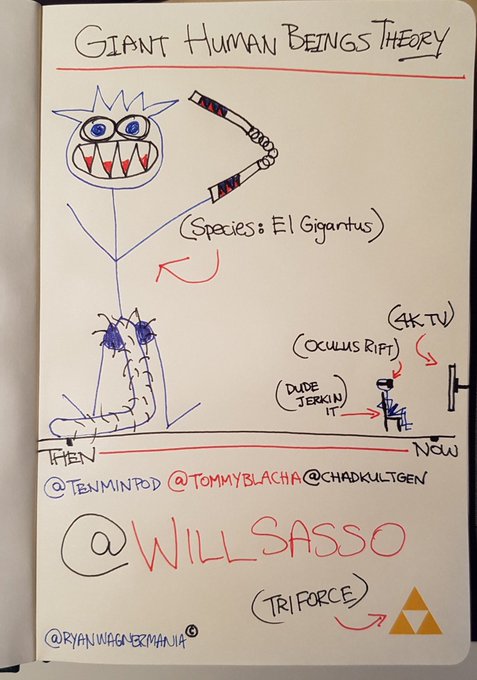 GIANT HUMAN BEINGS THEORY
(Species: El Gigantus)
(4K TV)
(OCULUS RIFT)
(DUDE
JERKIN
IT)
THEN
NOW
@TENMINPOD @TOMMYBLACHA @CHADKULTGEN
@WILLSASSO
(TRIFORCE)
@RYANWAGNERMANIA ©